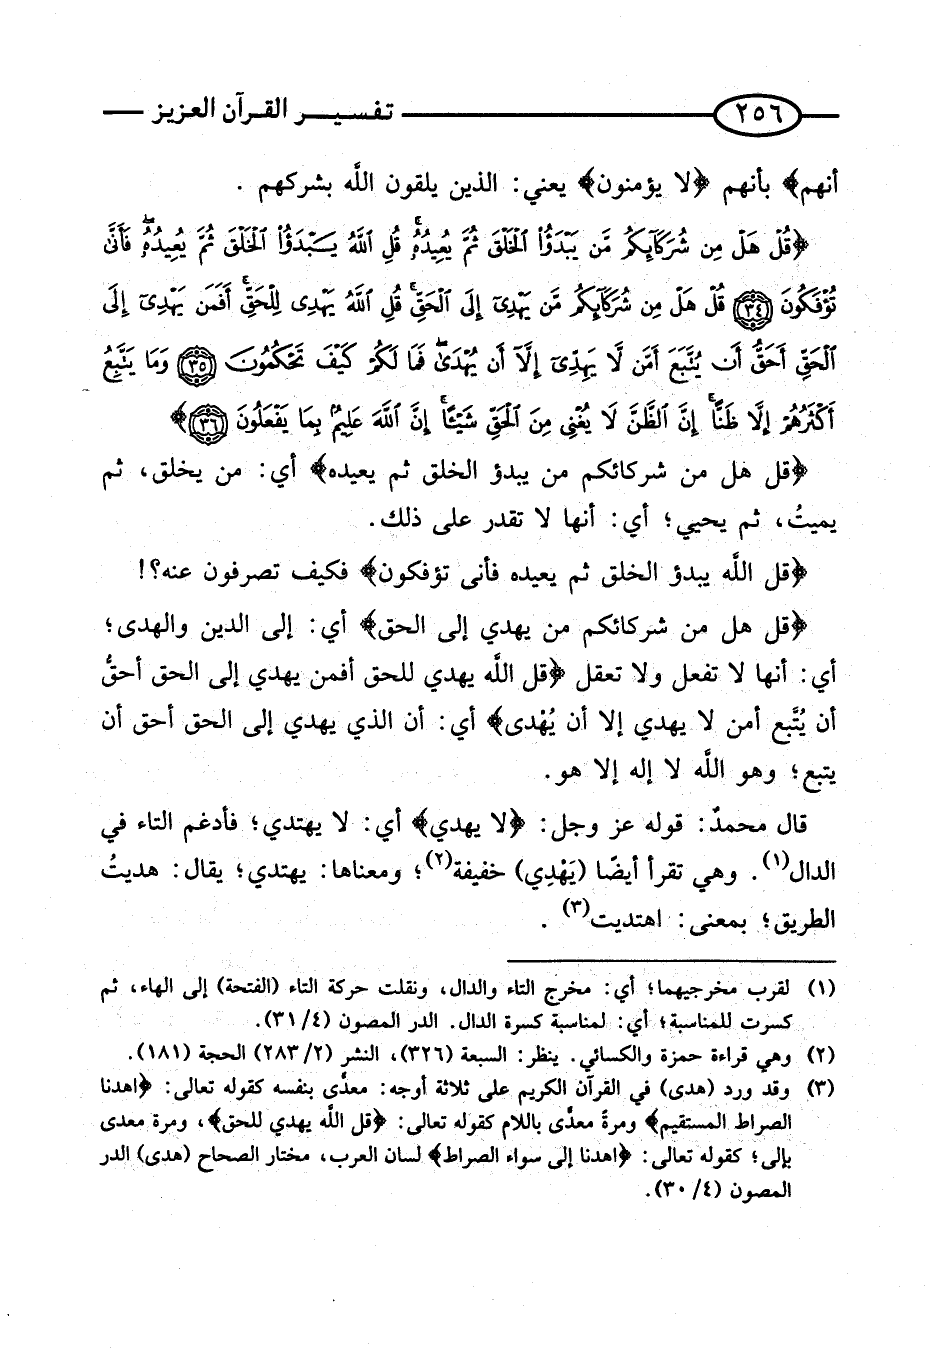 ٢٥٦ تفسير القرآن العزيز
أنهم﴾ بأنهم ﴿لا يؤمنون﴾ يعني: الذين يلقون اللَّه بشركهم .
﴿قُلْ هَلْ مِن شُرَكَآئِكُم مَّن يَبْدَؤُا۟ ٱلْخَلْقَ ثُمَّ يُعِيدُهُۥ ۚ قُلِ ٱللَّهُ يَبْدَؤُا۟ ٱلْخَلْقَ ثُمَّ يُعِيدُهُۥ ۖ فَأَنَّىٰ
تُؤْفَكُونَ ﴿٣٤﴾ قُلْ هَلْ مِن شُرَكَآئِكُم مَّن يَهْدِىٓ إِلَى ٱلْحَقِّ ۚ قُلِ ٱللَّهُ يَهْدِى لِلْحَقِّ ۗ أَفَمَن يَهْدِىٓ إِلَى
ٱلْحَقِّ أَحَقُّ أَن يُتَّبَعَ أَمَّن لَّا يَهِدِّىٓ إِلَّآ أَن يُهْدَىٰ ۖ فَمَا لَكُمْ كَيْفَ تَحْكُمُونَ ﴿٣٥﴾ وَمَا يَتَّبِعُ
أَكْثَرُهُمْ إِلَّا ظَنًّا ۚ إِنَّ ٱلظَّنَّ لَا يُغْنِى مِنَ ٱلْحَقِّ شَيْـًٔا ۚ إِنَّ ٱللَّهَ عَلِيمٌۢ بِمَا يَفْعَلُونَ ﴿٣٦﴾﴾
﴿قل هل من شركائكم من يبدؤ الخلق ثم يعيده﴾ أي: من يخلق، ثم
يميتُ، ثم يحيي؛ أي: أنها لا تقدر على ذلك.
﴿قل اللَّه يبدؤ الخلق ثم يعيده فأنى تؤفكون﴾ فكيف تصرفون عنه؟!
﴿قل هل من شركائكم من يهدي إلى الحق﴾ أي: إلى الدين والهدى؛
أي: أنها لا تفعل ولا تعقل ﴿قل اللَّه يهدي للحق أفمن يهدي إلى الحق أحقُّ
أن يُتَّبع أمن لا يهدي إلا أن يُهْدى﴾ أي: أن الذي يهدي إلى الحق أحق أن
يتبع؛ وهو اللَّه لا إله إلا هو.
قال محمدٌ: قوله عز وجل: ﴿لا يهدي﴾ أي: لا يهتدي؛ فأدغم التاء في
الدال(١). وهي تقرأ أيضًا (يَهْدِي) خفيفة(٢)؛ ومعناها: يهتدي؛ يقال: هديتُ
الطريق؛ بمعنى: اهتديت(٣) .
(١) لقرب مخرجيهما؛ أي: مخرج التاء والدال، ونقلت حركة التاء (الفتحة) إلى الهاء، ثم
كسرت للمناسبة؛ أي: لمناسبة كسرة الدال. الدر المصون (٣١/٤).
(٢) وهي قراءة حمزة والكسائي. ينظر: السبعة (٣٢٦)، النشر (٢٨٣/٢) الحجة (١٨١).
(٣) وقد ورد (هدى) في القرآن الكريم على ثلاثة أوجه: معدًّى بنفسه كقوله تعالى: ﴿اهدنا
الصراط المستقيم﴾ ومرةً معدًّى باللام كقوله تعالى: ﴿قل اللَّه يهدي للحق﴾، ومرة معدى
بإلى؛ كقوله تعالى: ﴿اهدنا إلى سواء الصراط﴾ لسان العرب، مختار الصحاح (هدى) الدر
المصون (٣٠/٤).